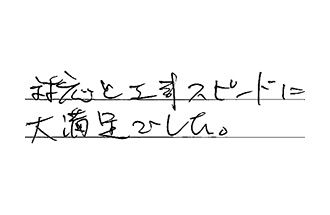 対応と工事スピードに
大満足でした。